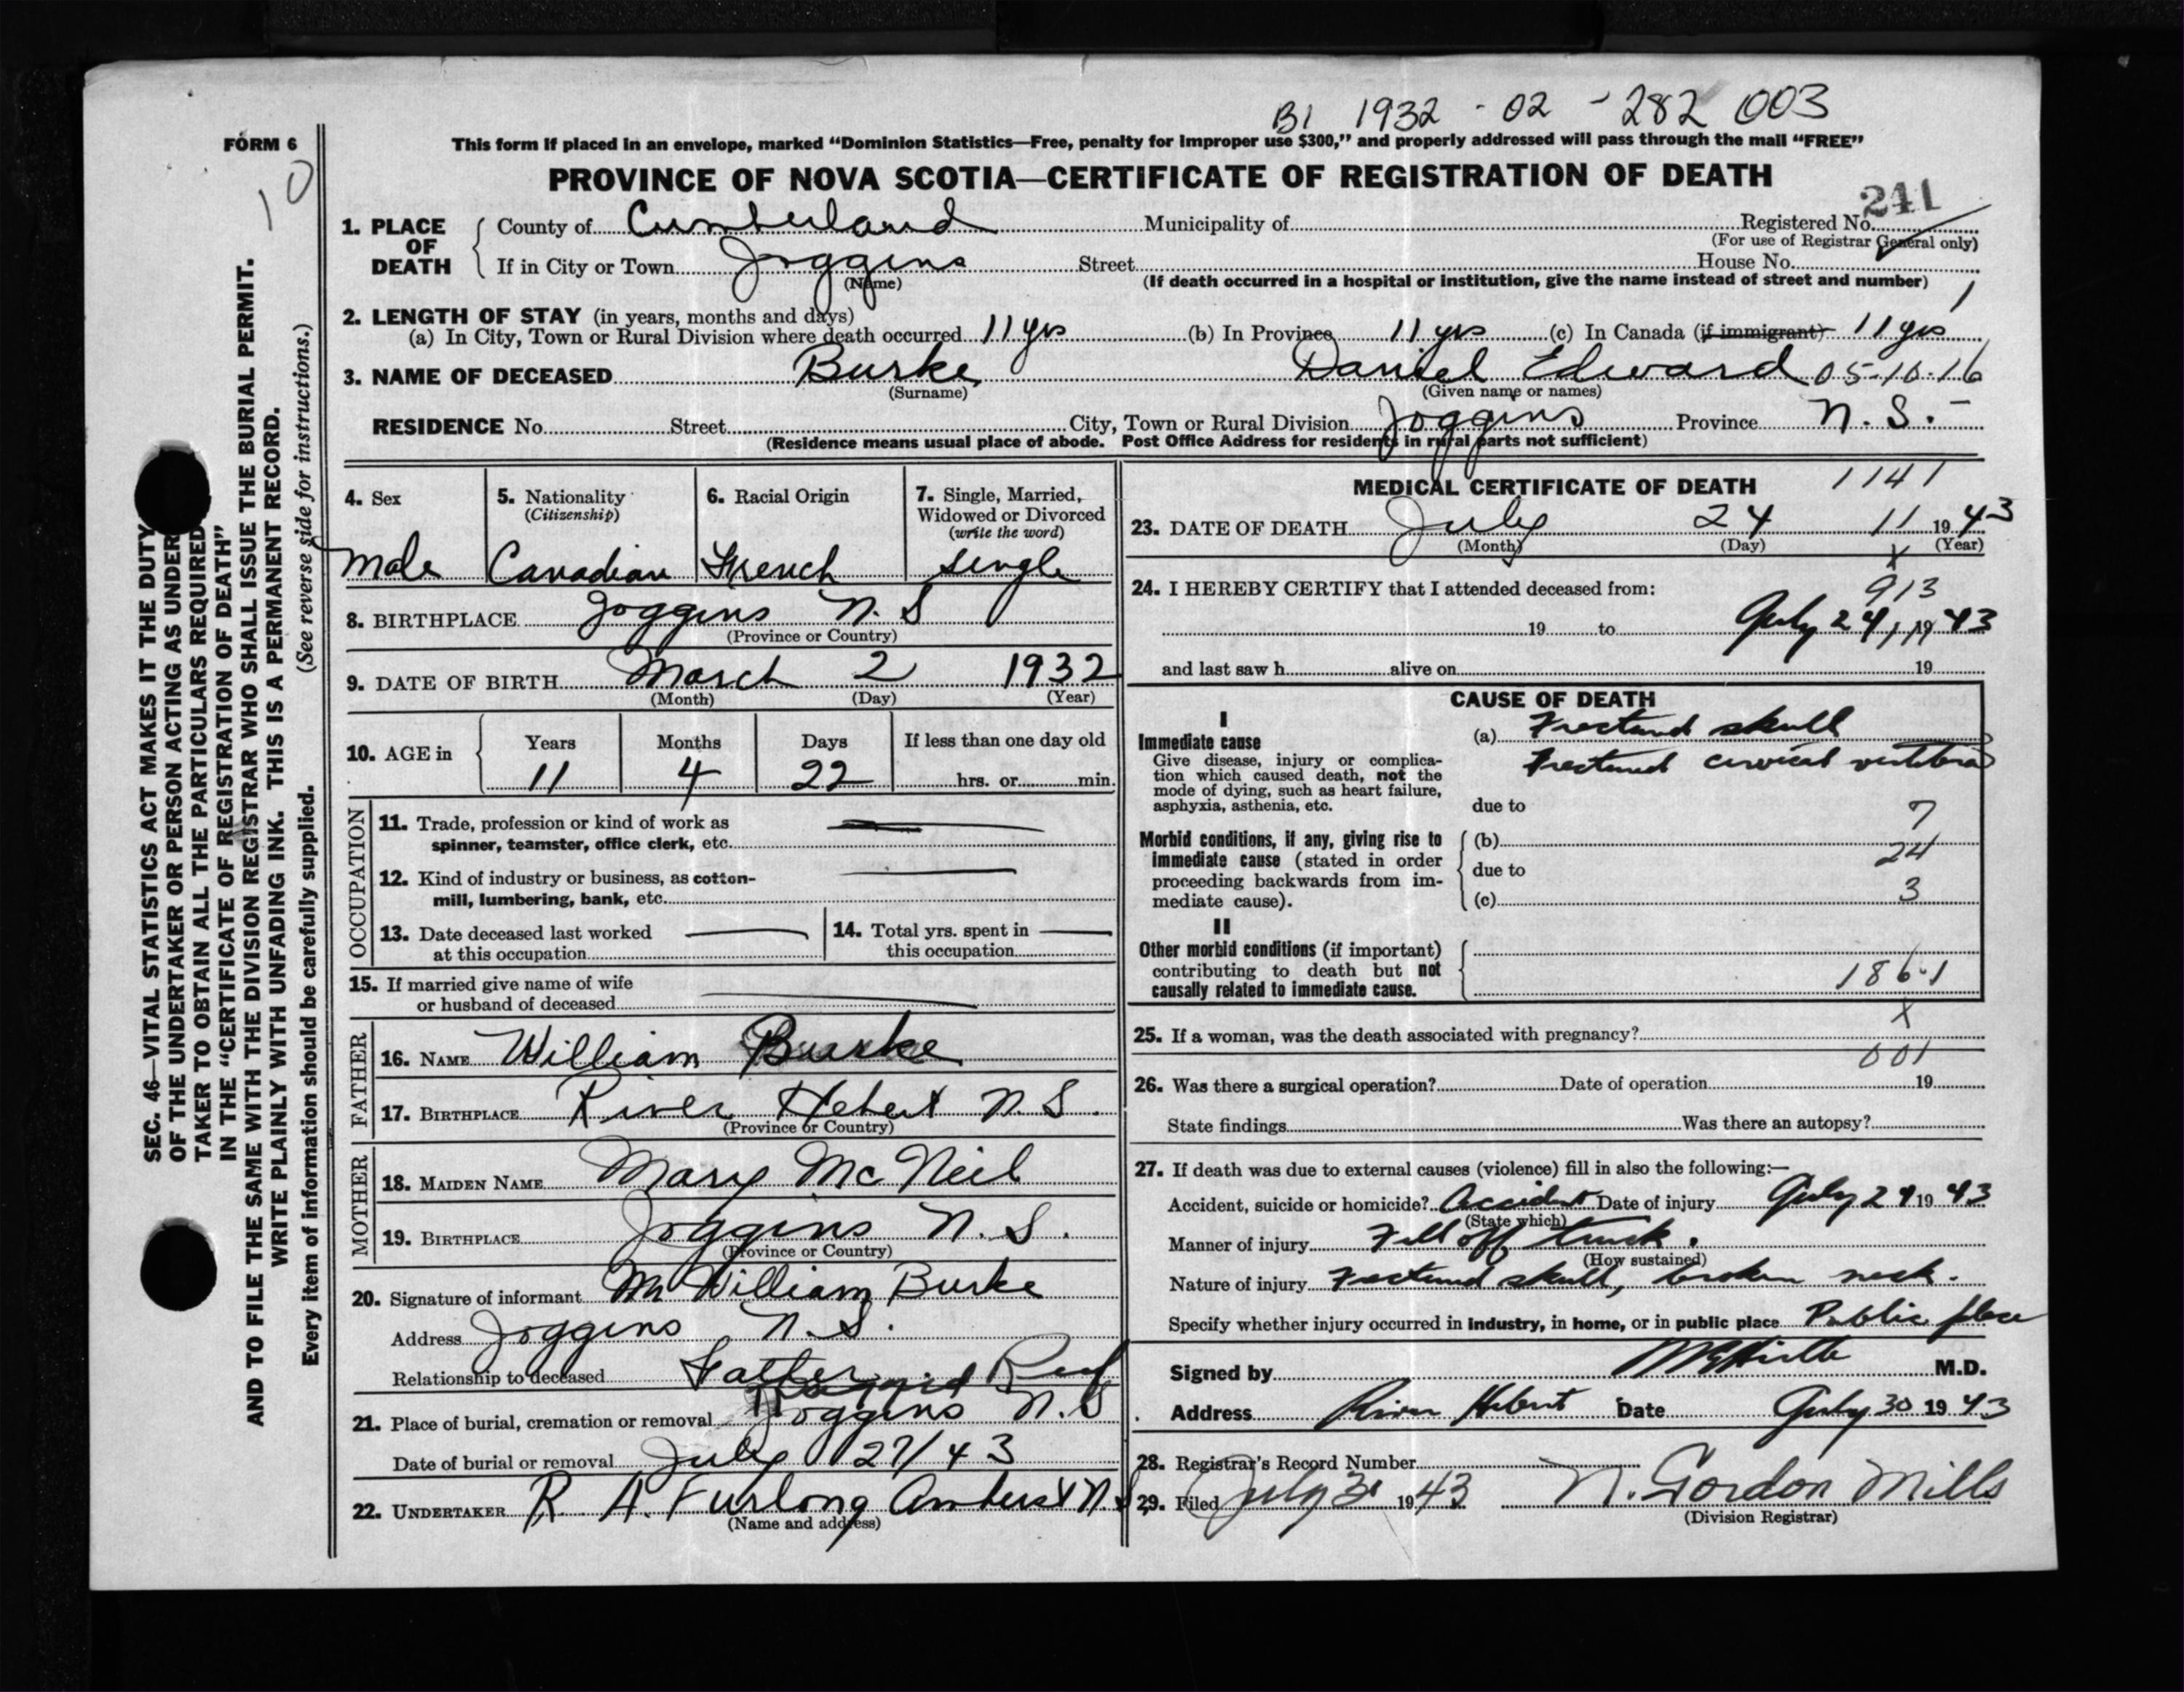 B1 1932 - 02 - 282 003
FORM 6
10
This form if placed in an envelope, marked “Dominion Statistics—Free, penalty for improper use $300,” and properly addressed will pass through the mail “FREE”
PROVINCE OF NOVA SCOTIA—CERTIFICATE OF REGISTRATION OF DEATH
241
1. PLACE OF DEATH
County of Cumberland Municipality of Registered No.
(For use of Registrar General only)
If in City or Town Joggins Street House No.
(Name) (If death occurred in a hospital or institution, give the name instead of street and number)
1
2. LENGTH OF STAY (in years, months and days)
(a) In City, Town or Rural Division where death occurred 11 yrs (b) In Province 11 yrs (c) In Canada (if immigrant) 11 yrs
3. NAME OF DECEASED Burke Daniel Edward 05-10-16
(Surname) (Given name or names)
RESIDENCE No. Street City, Town or Rural Division Joggins Province N. S.
(Residence means usual place of abode. Post Office Address for residents in rural parts not sufficient)
4. Sex
Male
5. Nationality
(Citizenship)
Canadian
6. Racial Origin
French
7. Single, Married,
Widowed or Divorced
(write the word)
single
8. BIRTHPLACE Joggins N. S
(Province or Country)
9. DATE OF BIRTH March 2 1932
(Month) (Day) (Year)
10. AGE in
Years Months Days If less than one day old
11 4 22 hrs. or min.
OCCUPATION
11. Trade, profession or kind of work as
spinner, teamster, office clerk, etc.
12. Kind of industry or business, as cotton-
mill, lumbering, bank, etc.
13. Date deceased last worked
at this occupation
14. Total yrs. spent in
this occupation
15. If married give name of wife
or husband of deceased
FATHER
16. NAME William Burke
17. BIRTHPLACE River Hebert N. S.
(Province or Country)
MOTHER
18. MAIDEN NAME Mary McNeil
19. BIRTHPLACE Joggins N. S.
(Province or Country)
20. Signature of informant Mr William Burke
Address Joggins N. S.
Relationship to deceased Father
21. Place of burial, cremation or removal Joggins N. S
Date of burial or removal July 27/43
22. UNDERTAKER R. A. Furlong Amherst N. S
(Name and address)
MEDICAL CERTIFICATE OF DEATH
1141
23. DATE OF DEATH July 24 11 1943
(Month) (Day) (Year)
x
24. I HEREBY CERTIFY that I attended deceased from:
913
19 to July 24, 1943
and last saw h alive on 19
CAUSE OF DEATH
I
Immediate cause
Give disease, injury or complica-
tion which caused death, not the
mode of dying, such as heart failure,
asphyxia, asthenia, etc.
(a) Fractured skull
Fractured cervical vertebra
due to
7
Morbid conditions, if any, giving rise to
immediate cause (stated in order
proceeding backwards from im-
mediate cause).
(b)
24
due to
3
(c)
II
Other morbid conditions (if important)
contributing to death but not
causally related to immediate cause.
186.1
x
25. If a woman, was the death associated with pregnancy?
001
26. Was there a surgical operation? Date of operation 19
State findings Was there an autopsy?
27. If death was due to external causes (violence) fill in also the following:—
Accident, suicide or homicide? Accident Date of injury July 24 1943
(State which)
Manner of injury Fell off truck.
(How sustained)
Nature of injury Fractured skull, broken neck.
Specify whether injury occurred in industry, in home, or in public place Public place
Signed by M.D.
Address River Hebert Date July 30 1943
28. Registrar's Record Number
29. Filed July 31 1943 N. Gordon Mills
(Division Registrar)
SEC. 46—VITAL STATISTICS ACT MAKES IT THE DUTY
OF THE UNDERTAKER OR PERSON ACTING AS UNDER
TAKER TO OBTAIN ALL THE PARTICULARS REQUIRED
IN THE “CERTIFICATE OF REGISTRATION OF DEATH”
AND TO FILE THE SAME WITH THE DIVISION REGISTRAR WHO SHALL ISSUE THE BURIAL PERMIT.
WRITE PLAINLY WITH UNFADING INK. THIS IS A PERMANENT RECORD.
Every item of information should be carefully supplied. (See reverse side for instructions.)